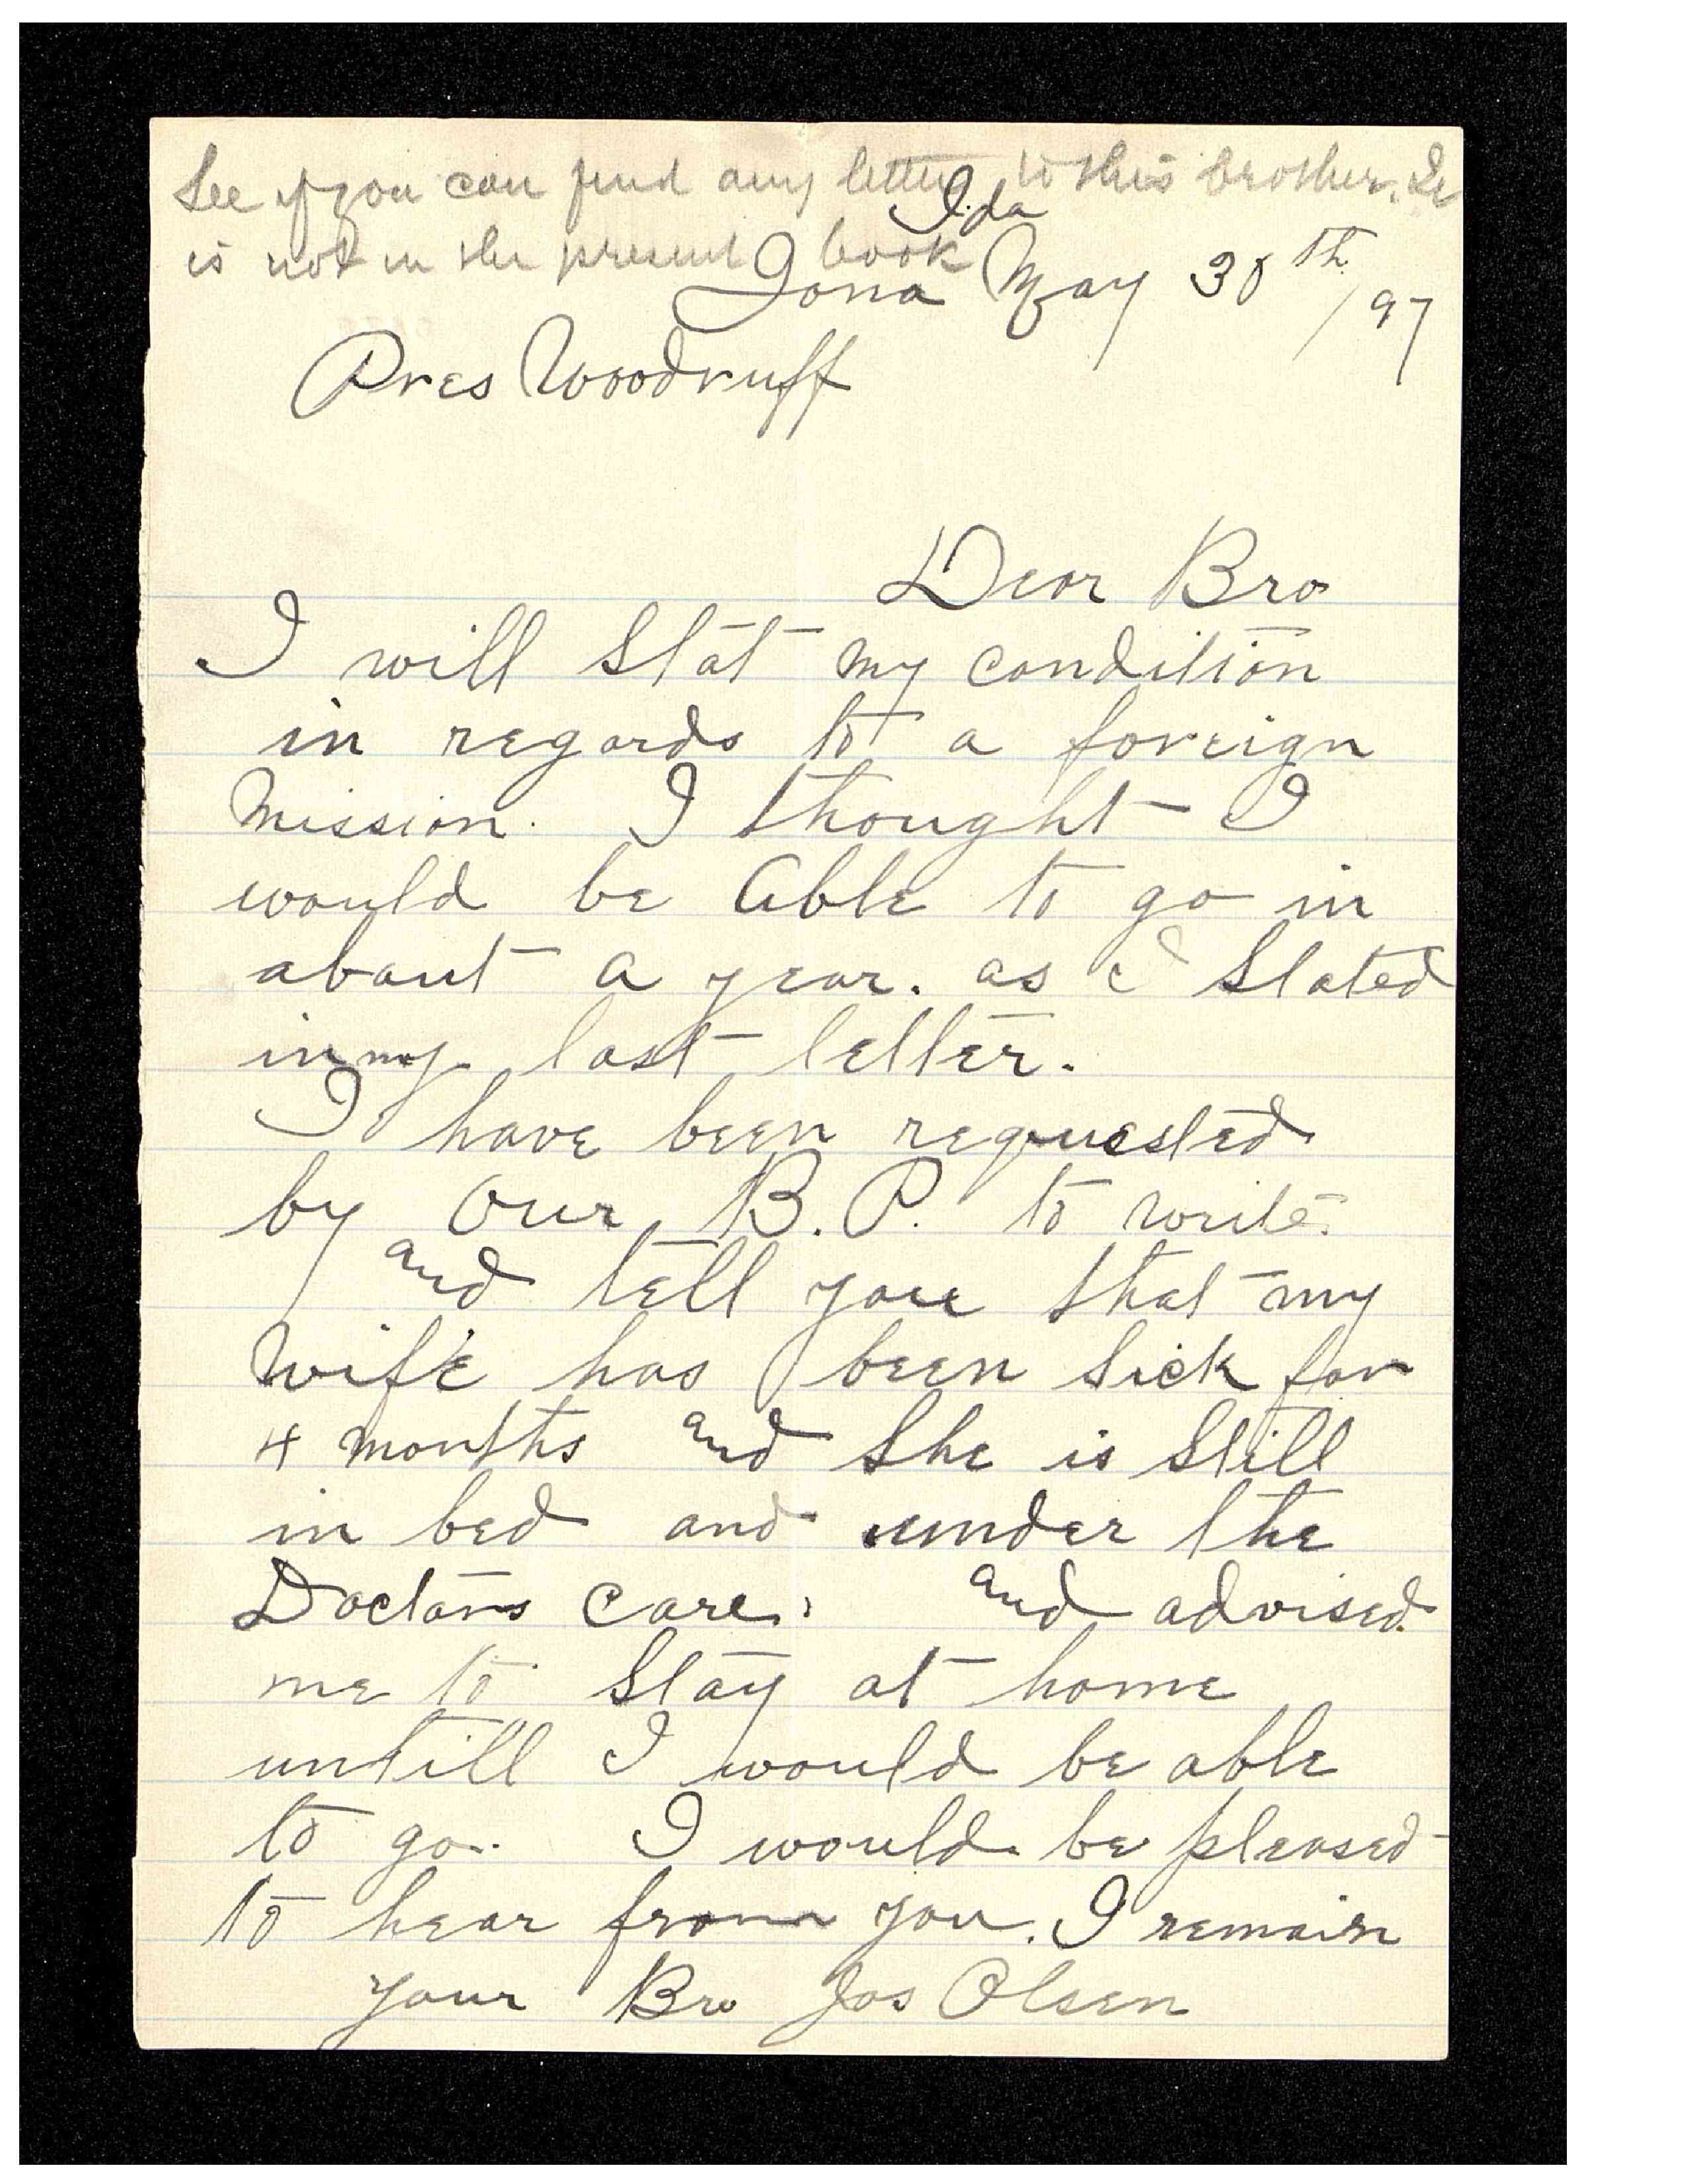 See if you can find any letter to this brother. It
is not in the present book
Ida
Iona May 30th/97
Pres Woodruff
Dear Bro
I will Stat my condition
in regards to a foreign
Mission. I thought I
would be Able to go in
about a year. as I Stated
in my last letter.
I have been requested
by Our B.P. to write.
and tell you that my
Wife has been Sick for
4 months and She is Still
in bed and under the
Doctors Care. and advised
me to Stay at home
untill I would be able
to go. I would be pleased
to hear from you. I remain
your Bro Jos Olsen